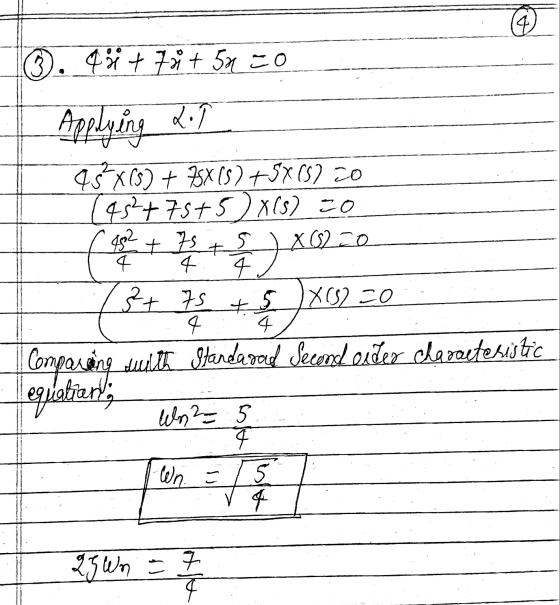 ④
③. 4ẍ + 7ẋ + 5x = 0
Applying L.T
4s²X(s) + 7sX(s) + 5X(s) = 0
(4s² + 7s + 5) X(s) = 0
(4s²/4 + 7s/4 + 5/4) X(s) = 0
(s² + 7s/4 + 5/4) X(s) = 0
Comparing with Standarad Second order characteristic
equation;
Wn² = 5/4
Wn = √(5/4)
2ζWn = 7/4